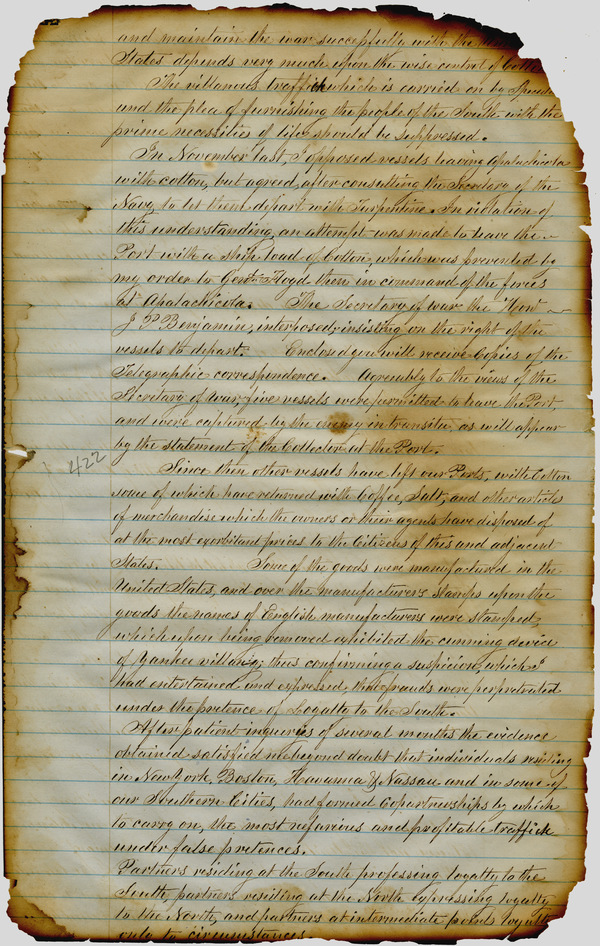 and maintain the war successfully with the
States depends very much upon the wise control of Cotton
The villanous traffick which is carried on by Specula
und the plea of furnishing the people of the South with the
prime necessities of life should be suppressed.
In November last, I opposed vessels leaving Apalachicola
with cotton, but agreed, after consulting the Secretary of the
Navy to let them depart with Turpentine. In violation of
this understanding an attempt was made to leave the
Port with a ship load of Cotton, which was prevented by
my order to Genl. Floyd then in command of the forces
at Apalachicola. The Secretary of war the Honl
J P Benjamin, interposed, insisting on the right of the
vessels to depart. Enclosed you will receive Copies of the
Telegraphic correspondence. Agreeably to the views of the
Secretary of war, five vessels were permitted to leave the Port,
and were captured by the enemy in transitu, as will appear
by the statement of the Collector at the Port.
422
Since then other vessels have left our Ports, with Cotton
some of which have returned with Coffee, Salt, and other articles
of merchandise which the owners or their agents have disposed of
at the most exorbitant prices to the Citizens of this and adjacent
States. Some of the goods were manufactured in the
United States, and over the manufacturers stamps upon the
goods the names of English manufacturers were stamped,
which upon being removed exhibited the cunning device
of Yankee villany; thus confirming a suspicion, which I
had entertained and expressed, that frauds were perpetrated
under the pretence of Loyalty to the South.
After patient inquiries of several months the evidence
obtained satisfied me beyond doubt that individuals residing
in New York, Boston, Havanna & Nassau and in some of
our Southern Cities, had formed Copartnerships by which
to carry on, the most nefarious and profitable traffick
under false pretences.
Partners residing at the South professing loyalty to the
South, partners residing at the North expressing loyalty
to the North, and partners at intermediate points loyal
only to circumstances.